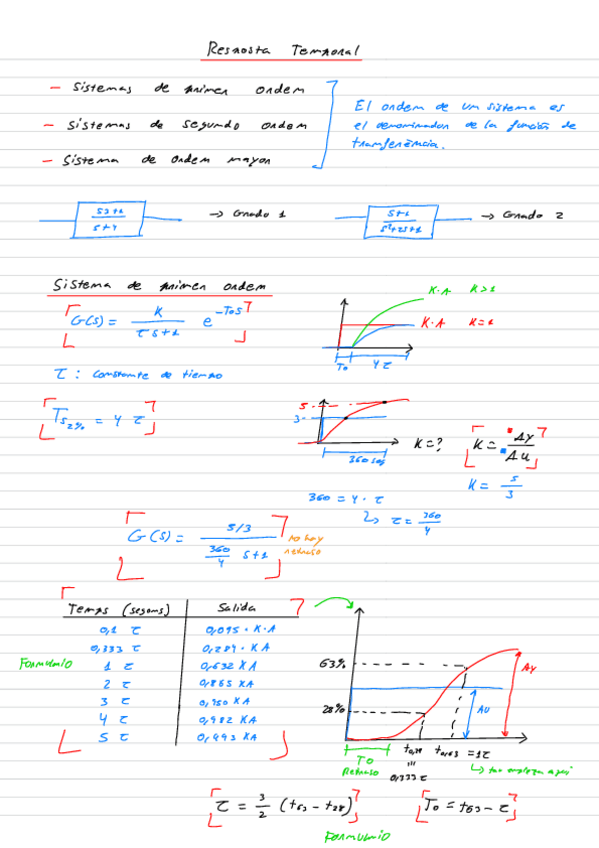 Resposta Temporal
- Sistemas de primer ordem
- Sistemas de segundo ordem
- Sistema de ordem mayor
El ordem de um sistema es
el denominador de la función de
transferência.
s3+1
s+4
→ Grado 1
s+1
s²+2s+1
→ Grado 2
Sistema de primer ordem
G(s) = K / τs+1 e^-Tos
K·A K>1
K·A K=1
To 4τ
τ : constante de tiempo
Ts2% = 4 τ
5
3
360 seg
K=?
K = Δy / Δu
K = 5/3
360 = 4·τ
↳ τ = 360/4
G(s) = 5/3 / 360/4 s+1
no hay
retraso
Temps (segons) Salida
0,1 τ 0,095·K·A
0,333 τ 0,284·K·A
1 τ 0,632 KA
2 τ 0,865 KA
3 τ 0,950 KA
4 τ 0,982 KA
5 τ 0,993 KA
Formulario
63%
28%
Δy
Δu
To
Retraso
t0,28
0,333 τ
t0,63 = 1τ
τ = 3/2 (t63 - t28)
To = t63 - τ
Formulario